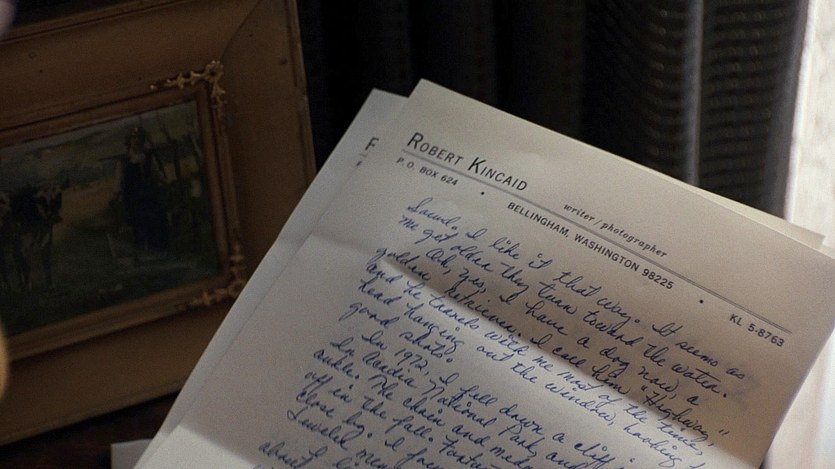 F
ROBERT KINCAID
writer/photographer
P.O. BOX 624 • BELLINGHAM, WASHINGTON 98225 • KL 5-8763
Sound. I like it that way. It seems as
me get older they turn toward the water.
Oh, yes, I have a dog now, a
golden retriever. I call him "Highway,"
and he travels with me most of the time,
head hanging out the window, looking f
good shots.
In 1972, I fell down a cliff
in Acadia National Park, and
ankle. The chain and meda
off in the fall. Fortu
close by. I fou
about